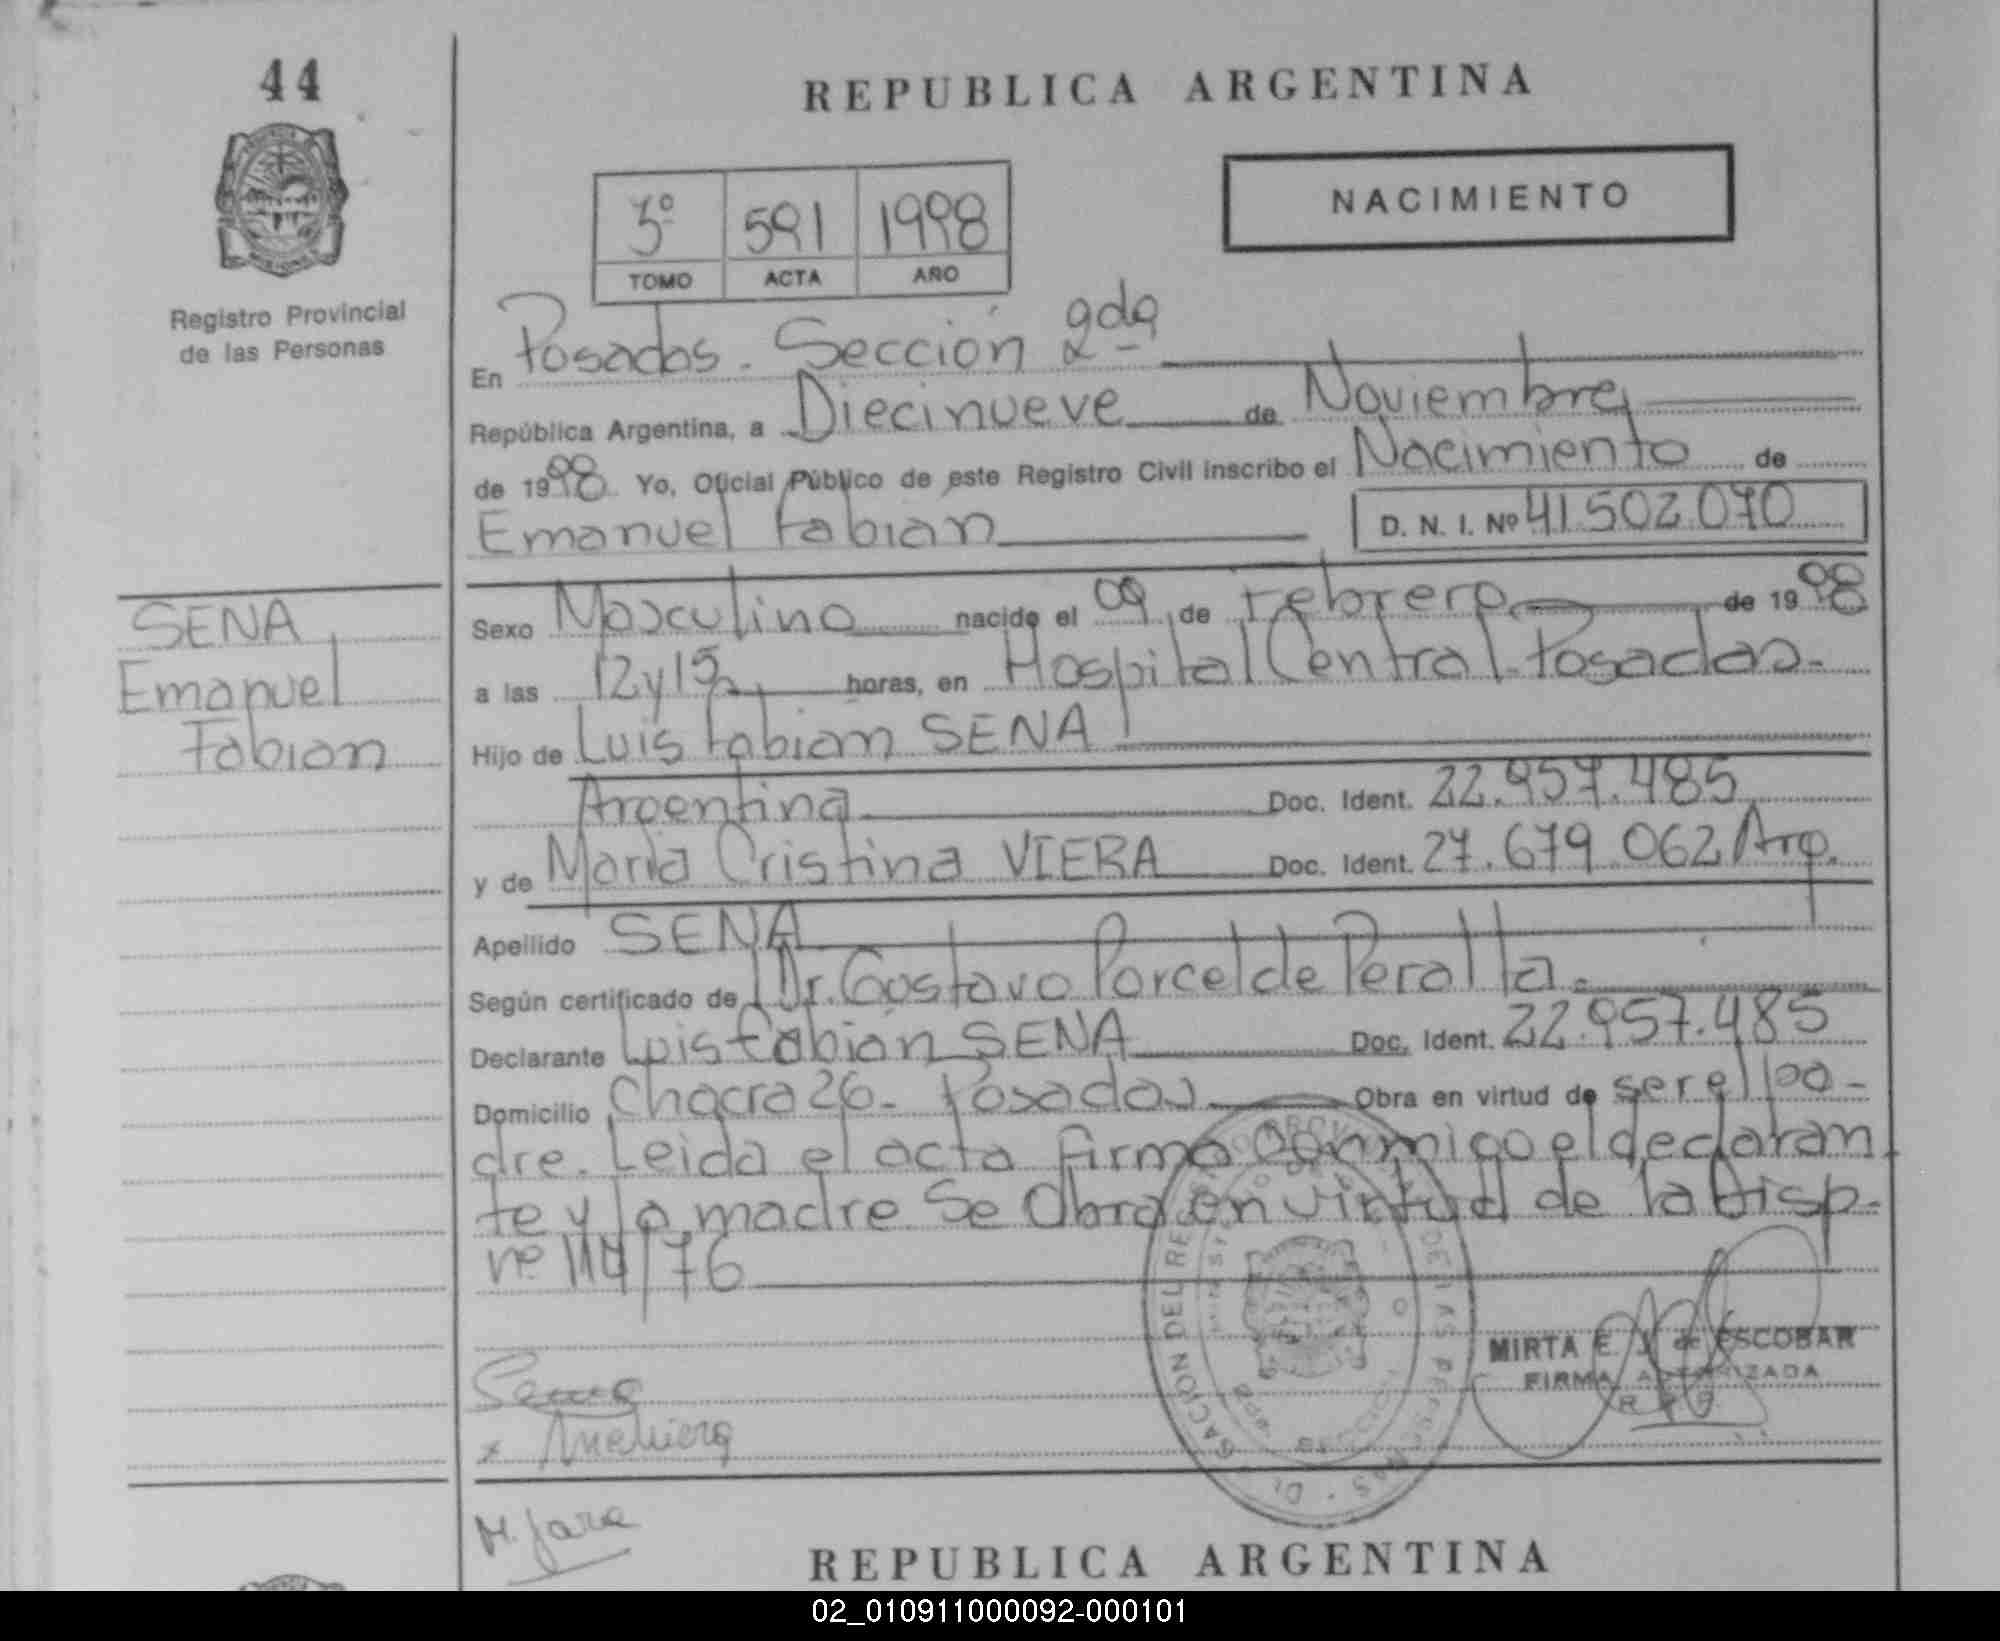 44
REPUBLICA ARGENTINA
NACIMIENTO
3º 591 1998
TOMO ACTA AÑO
Registro Provincial
de las Personas
En Posadas. Sección 2da
República Argentina, a Diecinueve de Noviembre
de 1998 Yo, Oficial Público de este Registro Civil inscribo el Nacimiento de
Emanuel Fabian D. N. I. Nº 41.502.070
SENA
Emanuel
Fabian
Sexo Masculino nacido el 09 de Febrero de 1998
a las 12 y 15 horas, en Hospital Central-Posadas.
Hijo de Luis Fabian SENA
Argentina Doc. Ident. 22.957.485
y de Maria Cristina VIERA Doc. Ident. 27.679.062 Arg.
Apellido SENA
Según certificado de Dr. Gustavo Porcel de Peralta.
Declarante Luis Fabián SENA Doc. Ident. 22.957.485
Domicilio Chacra 26- Posadas Obra en virtud de ser el pa-
dre. Leida el acta firma conmigo el declaran
te y la madre Se Obra en virtud de la Disp.
nº 114/76
MIRTA E. J. de ESCOBAR
FIRMA AUTORIZADA
R. P. P.
M. Jara
REPUBLICA ARGENTINA
02_010911000092-000101